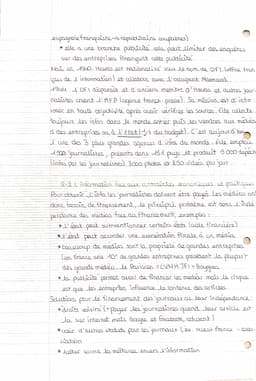 • elle a une branche publicité elle peut limiter des enquêtes
sur des entreprises finançant cette publicité
Mais en 1940 Havas est nationalisé sous le nom de OFI (office fran
çais de l'information) et collabore avec l'occupant Allemand.
OFI disparaît et d'anciens membres d'Havas et autres jour-
nalistes créent l'AFP (agence France-presse). Sa mission est d'infor-
mer en toute objectivité après avoir vérifié les sources. Elle collecte
toujours les infos dans le monde entier puis les vendre aux médias
à des entreprises ou à l'état ( du budget). C'est aujourd'hui
l'une des 3 plus grandes agences d'infos du monde. Elle emploie
journalistes, présente dans 151 pays et produit 5 000 dépêches
(infos par les journalistes), 3000 photos et 250 vidéos par jour.
L'information face aux contraintes économiques et politiques
Pour obtenir l'info les journalistes doivent être payés. Les médias ont
donc besoin de financement, le principal problème est donc l'indé
pendance des médias face au financement, exemples :
• l'état peut subventionner certains états (aide financière)
• l'état peut accorder une exonération fiscale à un média
• beaucoup de médias sont la propriété de grandes entreprises
(en France une 10ne de grandes entreprises possèdent la plupart
des grands médias, le Parisien = (LVMH, TF1 = Bouygues
• la publicité permet aussi de financer les médias mais le risque
est que les entreprises influence le contenu des articles
Solutions pour le financement des journaux ou leur indépendance :
• droits voisins (= payer les journalistes quand leur article est
lu sur internet mais Google et Facebook refusent)
• avoir d'autres statuts pour les journaux (ex : ouest France = asso-
ciation
• lutter contre la méfiance envers l'information